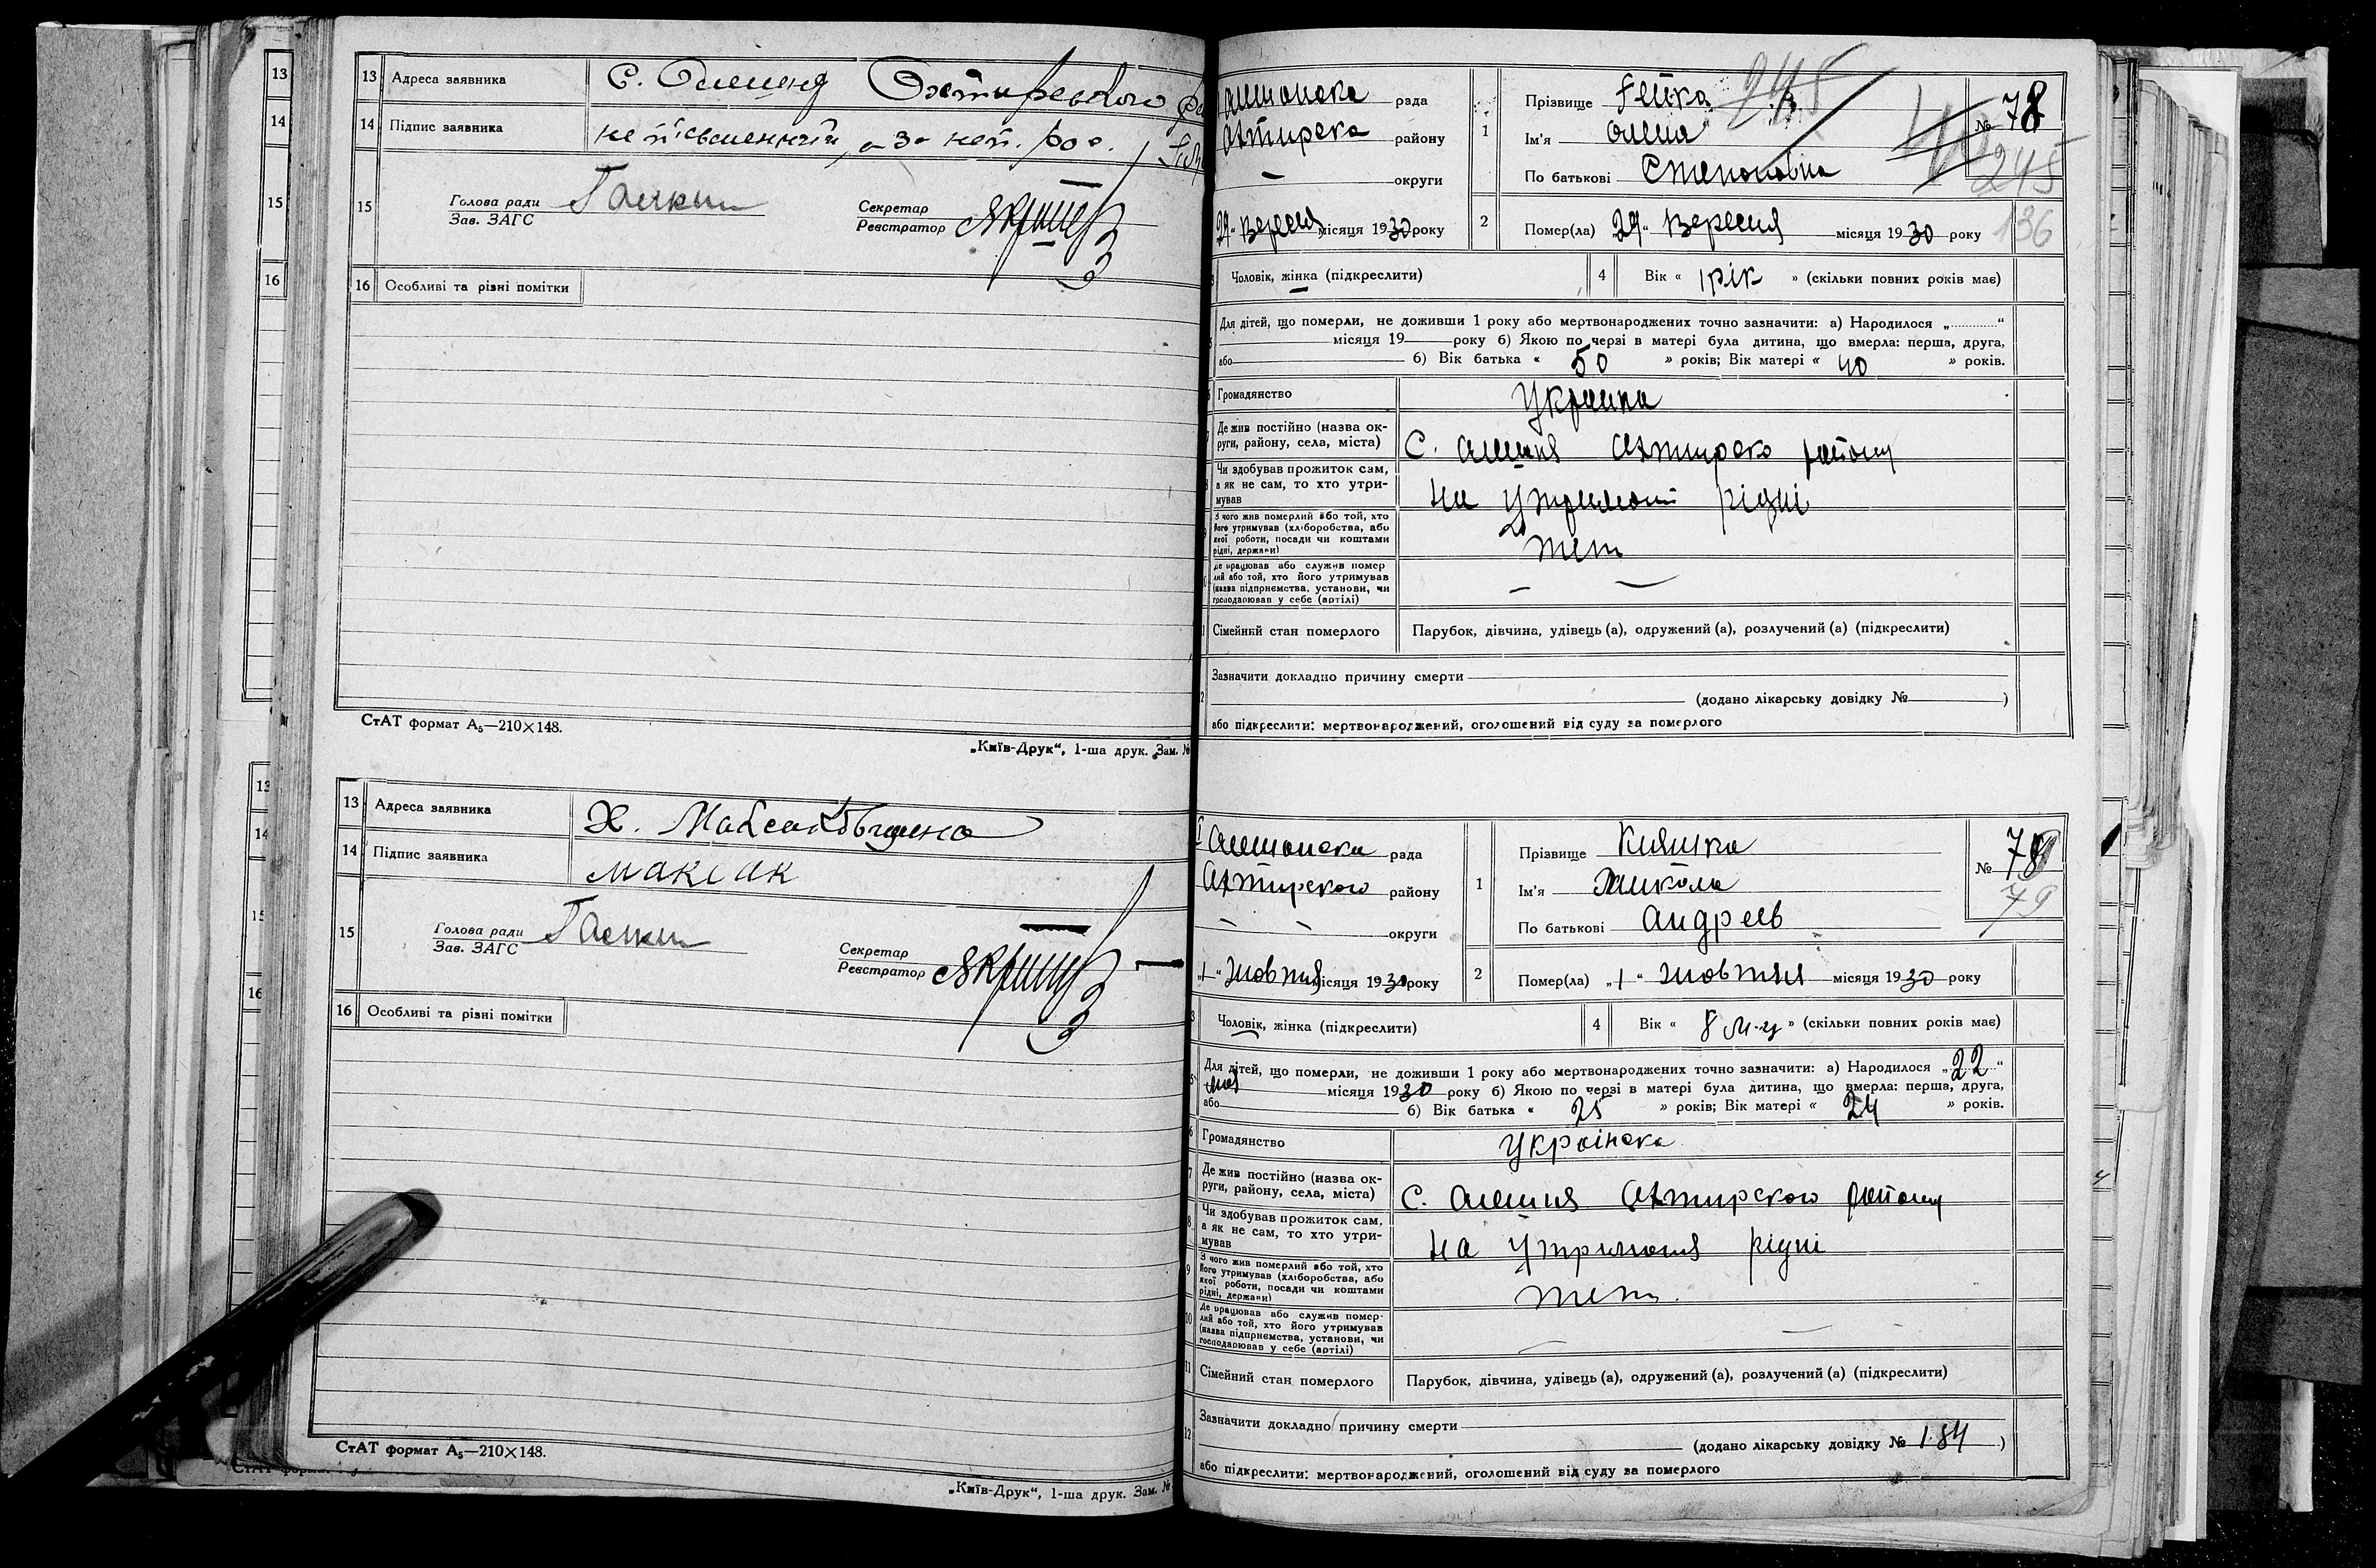 13 Адреса заявника С. Олешня Охтирського
14 Підпис заявника неписьменний, а за неп. рос.
15 Голова ради Зав. ЗАГС Секретар Реєстратор
16 Особливі та різні помітки
СтАТ формат А₅—210×148.
„Київ-Друк“, 1-ша друк. Зам. №
13 Адреса заявника Х. Максаковщина
14 Підпис заявника Максак
15 Голова ради Зав. ЗАГС Секретар Реєстратор
16 Особливі та різні помітки
СтАТ формат А₅—210×148.
„Київ-Друк“, 1-ша друк. Зам. №
Олешанска рада
Охтирска району
— округи
1 Прізвище 245
Ім'я Олена
По батькові Степановна
№ 78
245
136
29 " Вересня місяця 1930 року
2 Помер(ла) 29 " Вересня місяця 1930 року
Чоловік, жінка (підкреслити)
4 Вік « 1 рік » (скільки повних років має)
Для дітей, що померли, не доживши 1 року або мертвонароджених точно зазначити: а) Народилося „ “
місяця 19 року б) Якою по черзі в матері була дитина, що вмерла: перша, друга,
або б) Вік батька « 50 » років; Вік матері « 40 » років.
Громадянство Украина
Де жив постійно (назва округи, району, села, міста) С. Олешня Охтирско району
Чи здобував прожиток сам, а як не сам, то хто утримував на утримані рідні
З чого жив померлий або той, хто його утримував (хліборобства, або якої роботи, посади чи коштами рідні, держави)
Де працював або служив померлий або той, хто його утримував (назва підприємства, установи, чи господарював у себе (артілі) — —
Сімейний стан померлого Парубок, дівчина, удівець (а), одружений (а), розлучений (а) (підкреслити)
Зазначити докладно причину смерти
(додано лікарську довідку № )
або підкреслити: мертвонароджений, оголошений від суду за померлого
Олешанска рада
Охтирского району
— — округи
1 Прізвище Кияшка
Ім'я Микола
По батькові Андреев
№ 78
79
„1“ Жовтня місяця 1930 року
2 Помер(ла) „1“ жовтня місяця 1930 року
3 Чоловік, жінка (підкреслити)
4 Вік « 8 м-ц » (скільки повних років має)
5 Для дітей, що померли, не доживши 1 року або мертвонароджених точно зазначити: а) Народилося „22“
місяця 1930 року б) Якою по черзі в матері була дитина, що вмерла: перша, друга,
або б) Вік батька « 25 » років; Вік матері « 24 » років.
6 Громадянство Українска
7 Де жив постійно (назва округи, району, села, міста) С. Олешня Охтирского району
8 Чи здобував прожиток сам, а як не сам, то хто утримував на утриманя рідні
9 З чого жив померлий або той, хто його утримував (хліборобства, або якої роботи, посади чи коштами рідні, держави)
10 Де працював або служив померлий або той, хто його утримував (назва підприємства, установи, чи господарював у себе (артілі) — —
11 Сімейний стан померлого Парубок, дівчина, удівець (а), одружений (а), розлучений (а) (підкреслити)
12 Зазначити докладно причину смерти
(додано лікарську довідку № 184)
або підкреслити: мертвонароджений, оголошений від суду за померлого